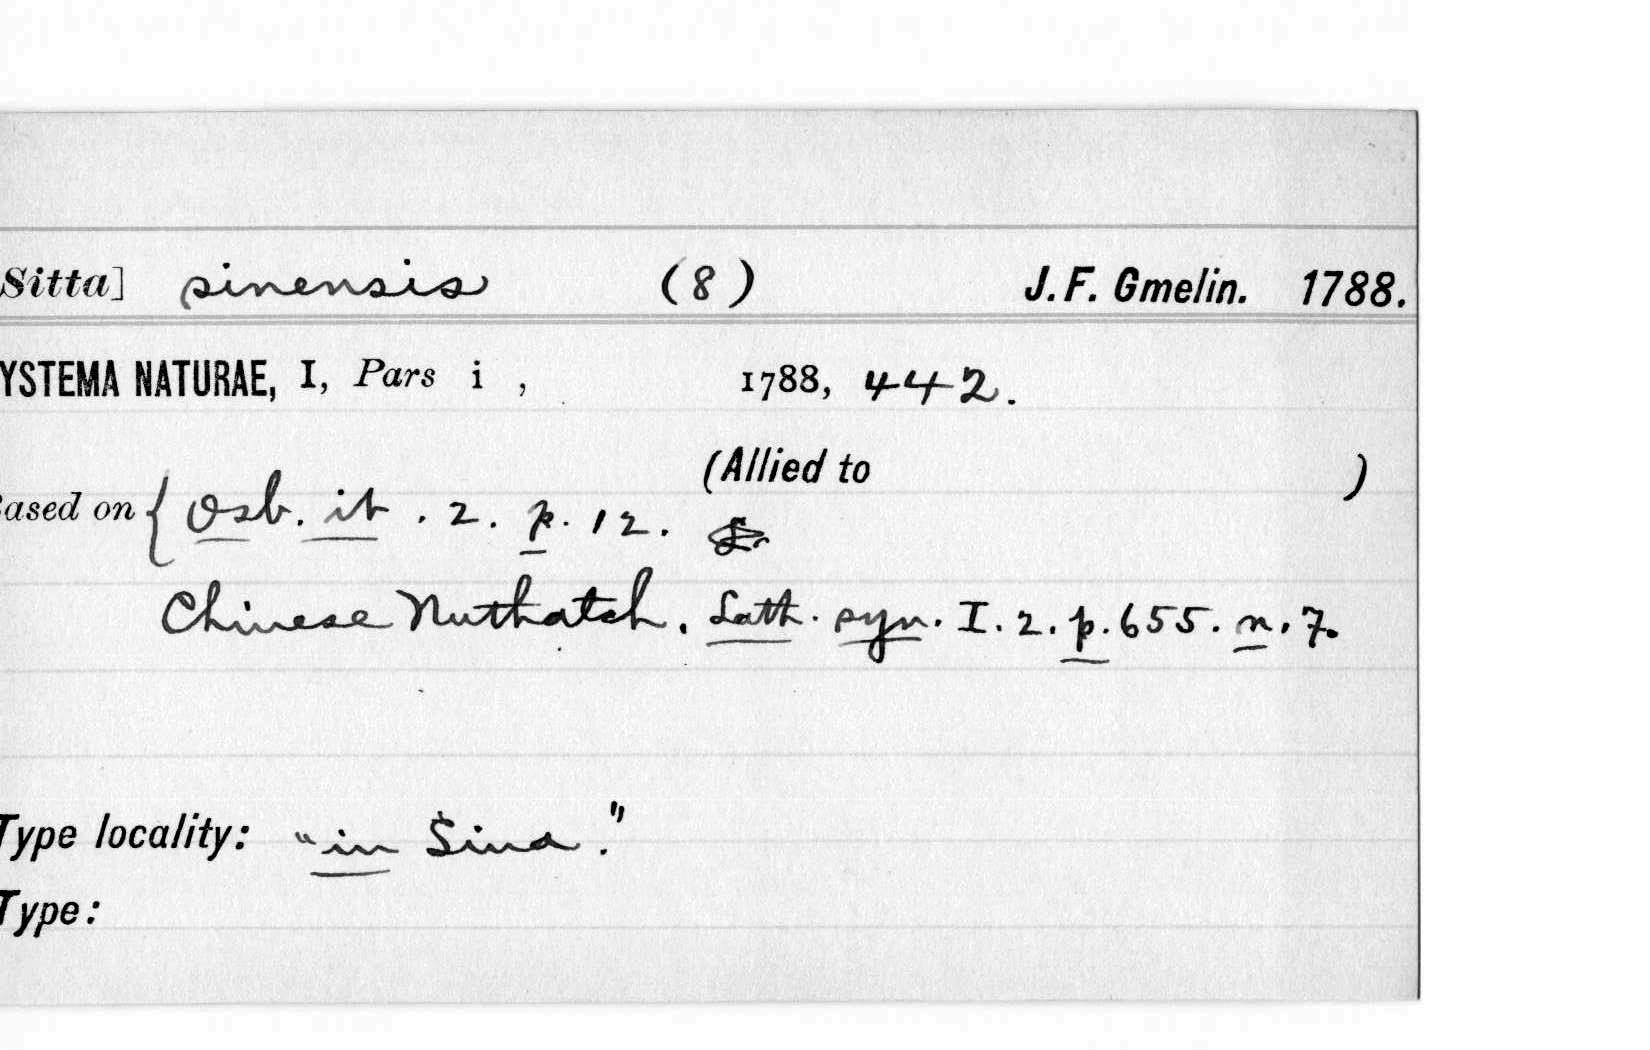 Sitta] sinensis (8) J. F. Gmelin. 1788.
YSTEMA NATURAE, I, Pars i , 1788, 442.
(Allied to )
ased on { Osb. it . 2. p. 12.
Chinese Nuthatch. Lath. syn. I. 2. p. 655. n. 7.
Type locality: "in Sina."
Type: